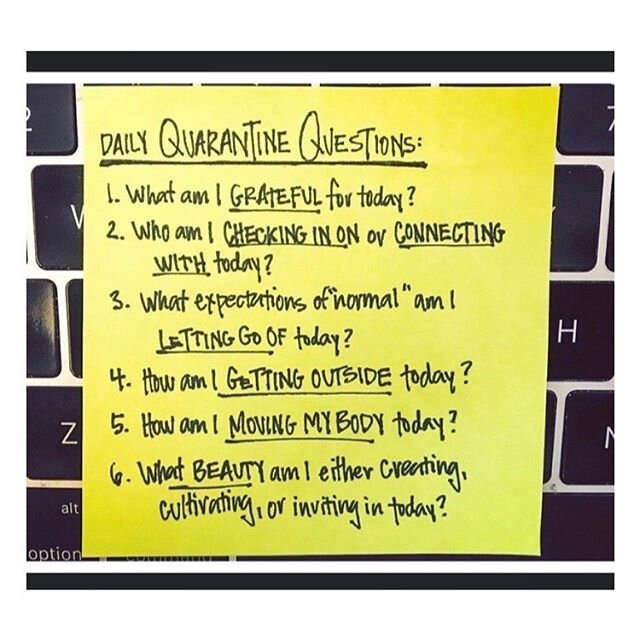 DAILY QUARANTINE QUESTIONS:
1. What am I GRATEFUL for today?
2. Who am I CHECKING IN ON or CONNECTING
WITH today?
3. What expectations of "normal" am I
LETTING GO OF today?
4. How am I GETTING OUTSIDE today?
5. How am I MOVING MY BODY today?
6. What BEAUTY am I either creating,
cultivating, or inviting in today?
2
7
W
H
Z
N
alt
option
command